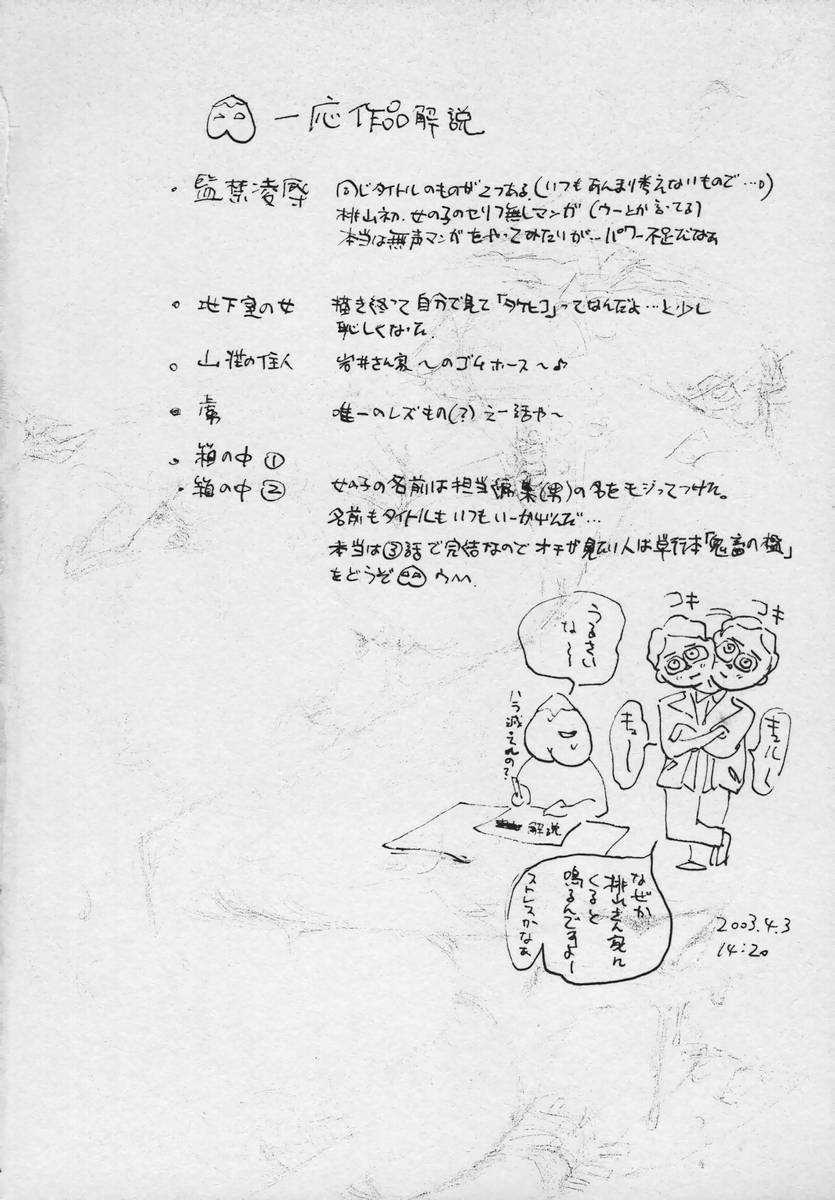 一応作品解説
・監禁凌辱 同じタイトルのものが2つある。(いつもあんまり考えないもので…。)
桃山初、女の子のセリフ無しマンガ(ウーとか言ってる)
本当は無声マンガをやってみたいが…パワー不足だなぁ
・地下室の女 描き終って自分で見て「タケヒコ」ってなんだよ…と少し
恥しくなった。
・山荘の住人 岩井さん家〜のゴムホース〜♪
・ 唯一のレズもの(?)えー話や〜
・箱の中①
・箱の中② 女の子の名前は担当編集(男)の名をモジってつけた。
名前もタイトルもいつもいーかげんだ…
本当は③話で完結なのでオチが見たい人は単行本「鬼畜の檻」
をどうぞ
うるさい
な〜
コキ
コキ
ハラ減ってんの?
キュー
キュルー
解説
なぜか
桃山さん家に
くると
鳴るんですよー
ストレスかなぁ
2003.4.3
14:20